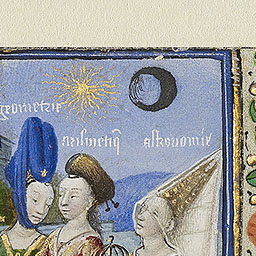 geometrie
arismetiq̃ astronomie